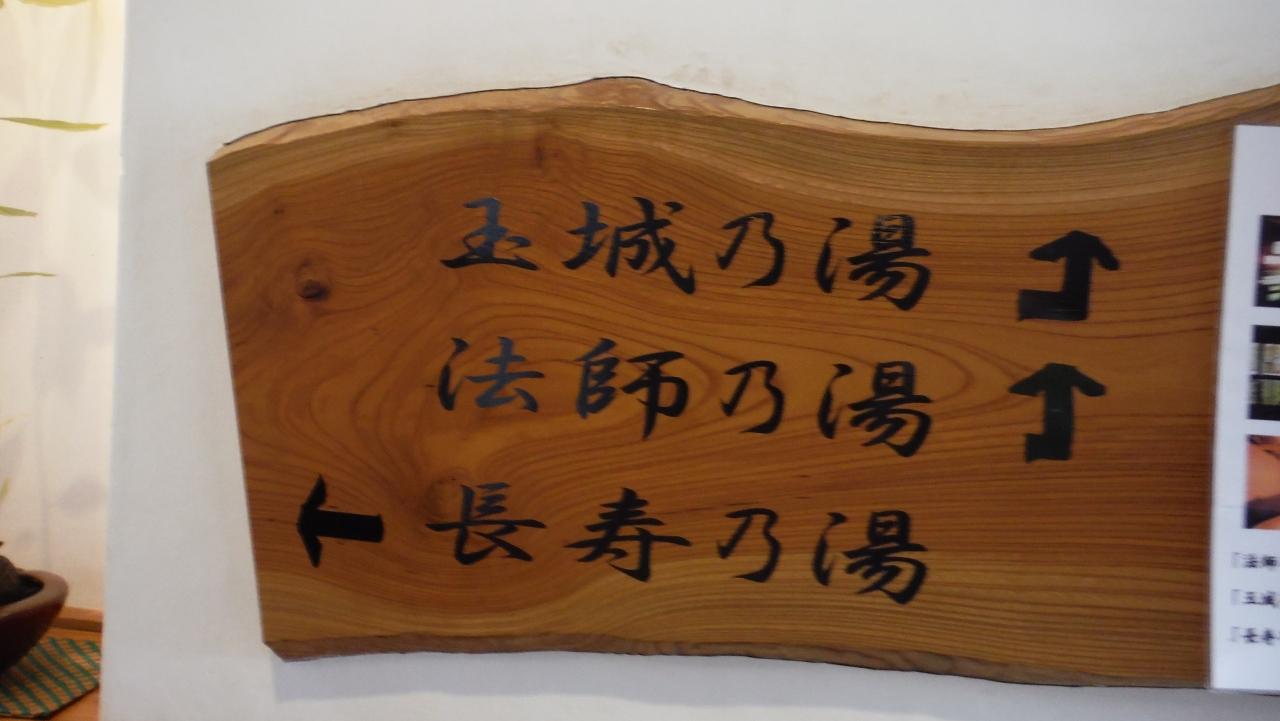 玉城乃湯
法師乃湯
長寿乃湯
「法師
「玉城
「長寿